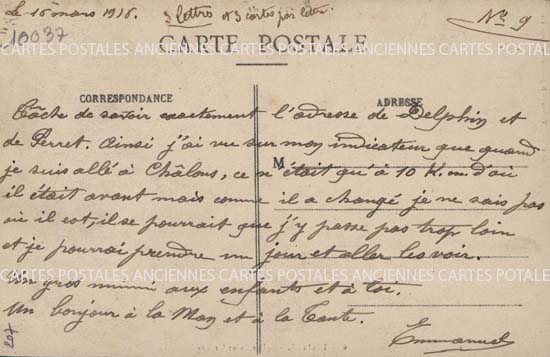 le 16 mars 1915. 3 lettres et 3 cartes par lettre. No 9
10037
CARTE POSTALE
CARTES POSTALES ANCIENNES CARTES POSTALES ANCIENNES CARTES POSTALES
CORRESPONDANCE ADRESSE
Tâche de savoir exactement l'adresse de Delphin et
de Perret. Ainsi j'ai vu sur mon indicateur que quand
M
je suis allé à Châlons, ce n'était qu'à 10 K.m. d'où
il était avant mais comme il a changé je ne sais pas
où il est, il se pourrait que j'y passe pas trop loin
et je pourrai prendre un jour et aller les voir.
CARTES POSTALES ANCIENNES CARTES POSTALES ANCIENNES CARTES POSTALES
Un gros mimi aux enfants et à toi.
Un bonjour à la Man et à la Tante.
Emmanuel
207